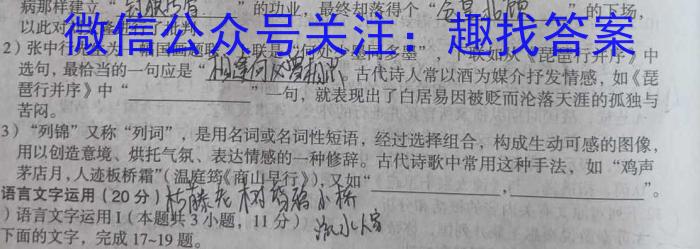 病那样建立“封狼居胥”的功业,最终却落得个“仓皇北顾”的下场,
以此对
微信公众号关注:趣找答案
2)张中行
《琵琶行并序》中
选句,最恰当的一句应是“相逢何必曾相识”。古代诗人常以酒为媒介抒发情感,如《琵
琶行并序》中“ ”一句,就表现出了白居易因被贬而沦落天涯的孤独与
苦闷。
3)“列锦”又称“列词”,是用名词或名词性短语,经过选择组合,构成生动可感的图像,
用以创造意境、烘托气氛、表达情感的一种修辞。古代诗歌中常用这种手法,如“鸡声
茅店月,人迹板桥霜”(温庭筠《商山早行》),又如“ , ”
语言文字运用(20分)枯藤老树昏鸦小桥
)语言文字运用I(本题共3小题,11分)流水人家
下面的文字,完成17~19题。